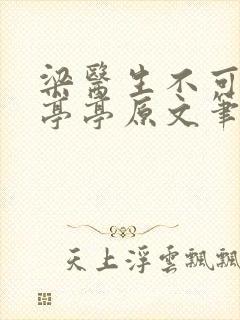 梁醫生不可
亭亭原文筆
天上浮雲飄飄